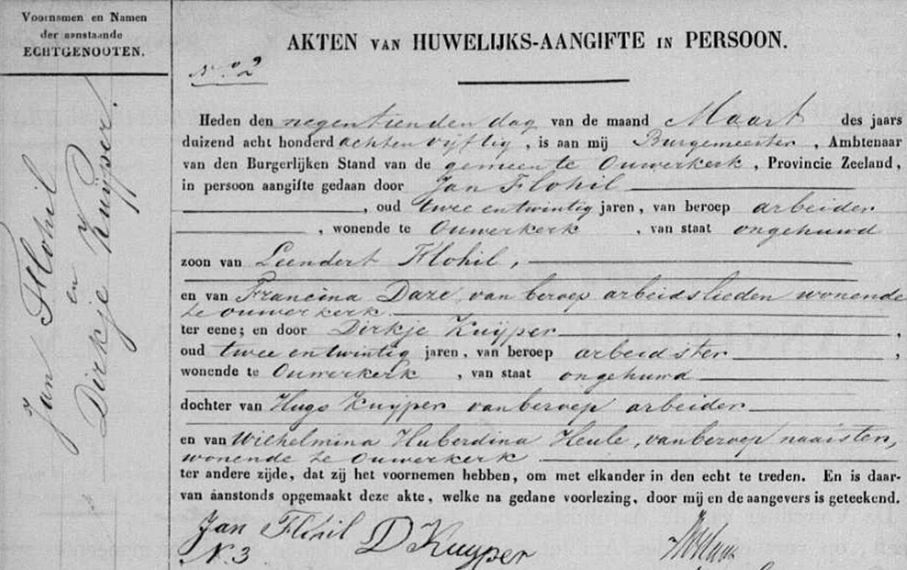 Voornamen en Namen
der aanstaande
ECHTGENOOTEN.
Jan Flohil
en
Dirkje Kuijper.
AKTEN VAN HUWELIJKS-AANGIFTE IN PERSOON.
No. 2
Heden den negentienden dag van de maand Maart des jaars
duizend acht honderd acht en vijftig, is aan mij Burgemeester, Ambtenaar
van den Burgerlijken Stand van de gemeente Ouwerkerk, Provincie Zeeland,
in persoon aangifte gedaan door Jan Flohil
, oud twee en twintig jaren, van beroep arbeider
, wonende te Ouwerkerk, van staat ongehuwd
zoon van Leendert Flohil,
en van Francina Daze, van beroep arbeidslieden wonende
te ouwerkerk
ter eene; en door Dirkje Kuijper,
oud twee en twintig jaren, van beroep arbeidster,
wonende te Ouwerkerk, van staat ongehuwd
dochter van Hugo Kuyper van beroep arbeider
en van Wilhelmina Huberdina Heule, van beroep naaister,
wonende te Ouwerkerk
ter andere zijde, dat zij het voornemen hebben, om met elkander in den echt te treden. En is daar-
van aanstonds opgemaakt deze akte, welke na gedane voorlezing, door mij en de aangevers is geteekend.
Jan Flohil D Kuyper
N. 3